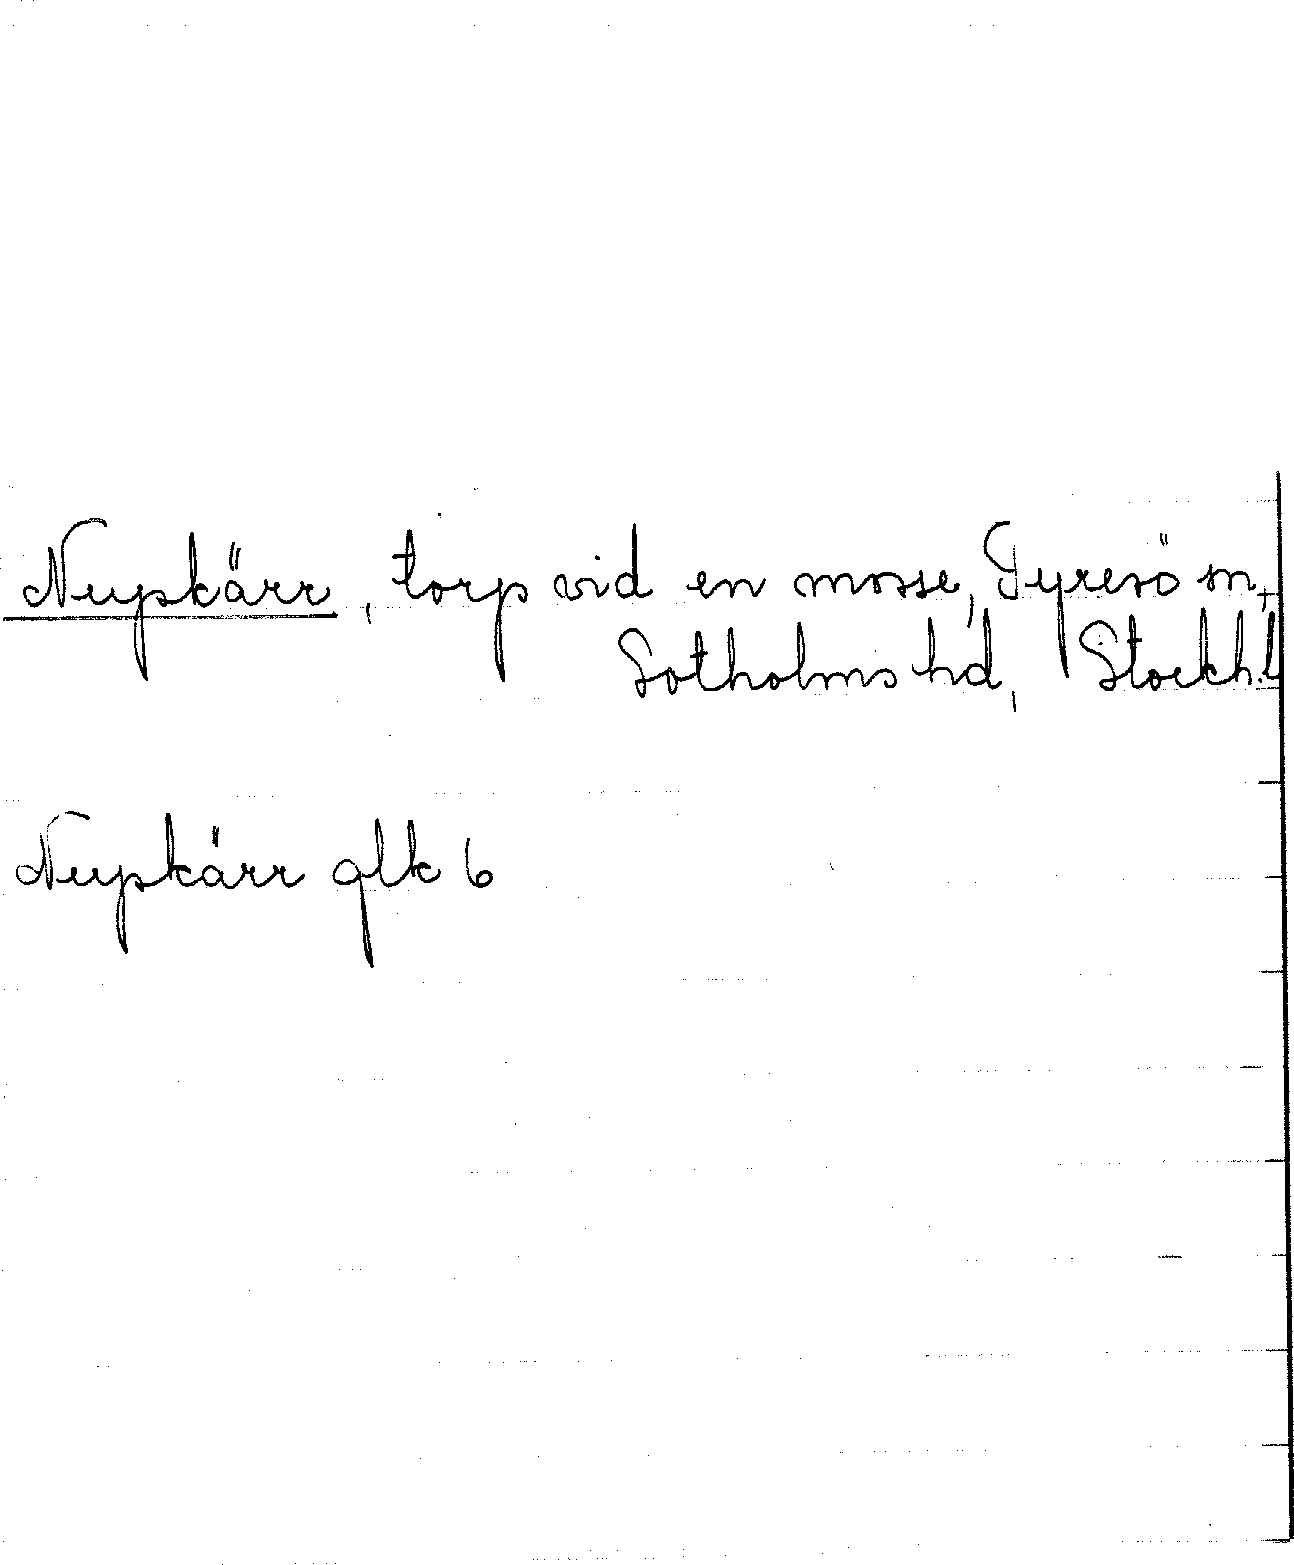 Nupkärr, torp vid en mosse, Tyresö sn,
Sotholms hd, Stockh.l
Nupkärr glk 6